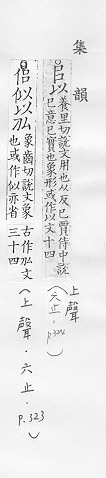 集韻
㠯以養里切說文用也从反已賈侍中說
已意已實也象形或作以文十四
(上聲
六止・P.324)
侣似以㕕象齒切說文象古作㕕文
也或作似亦省三十四
(上聲・六止・P.323)